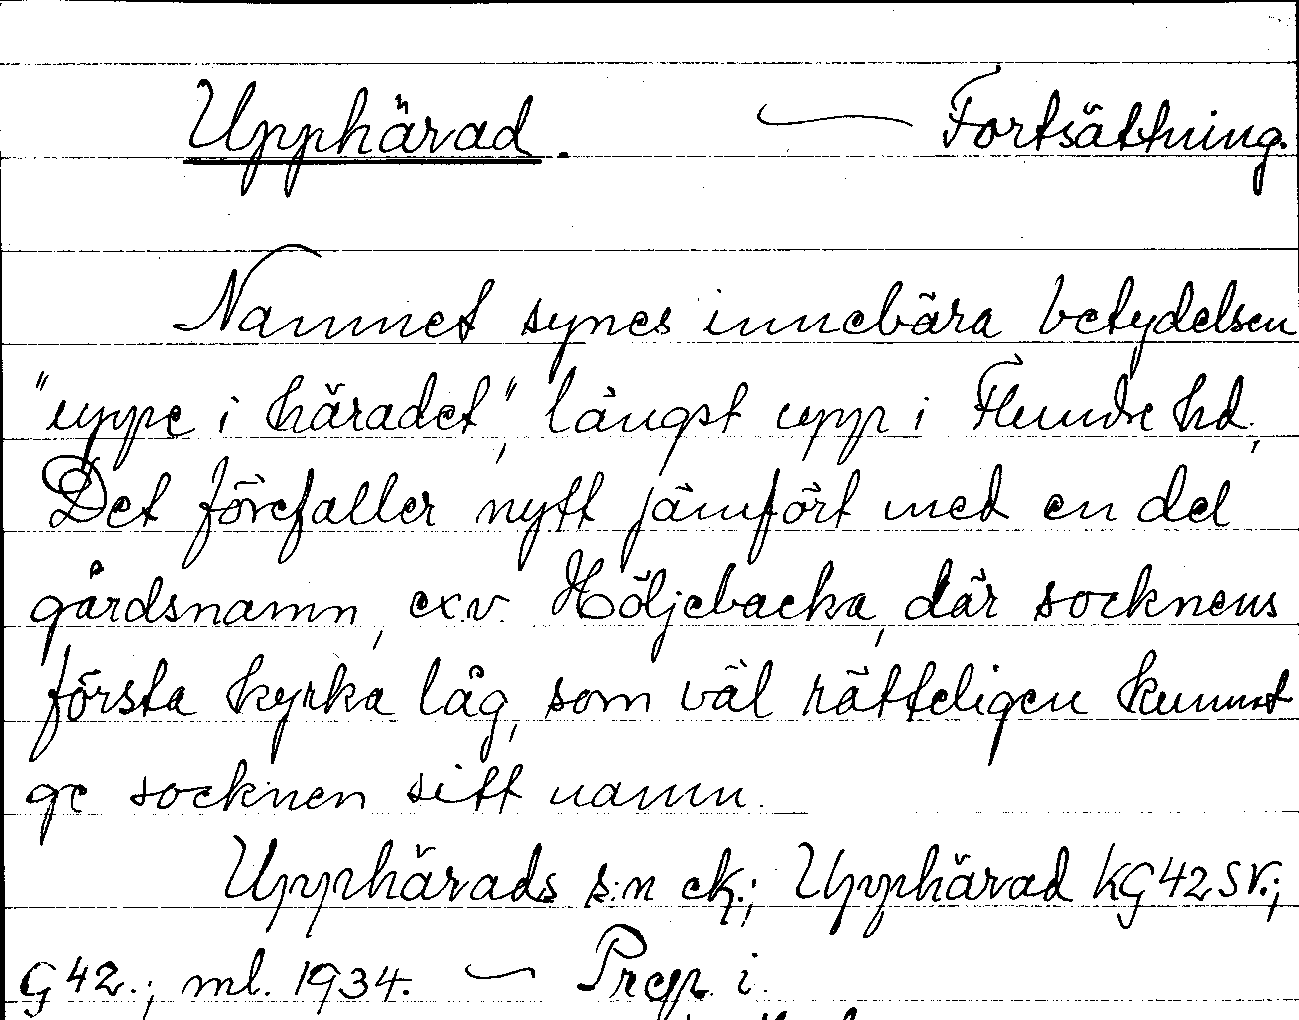 Upphärad. — Fortsättning.
Namnet synes innebära betydelsen
"uppe i häradet", längst upp i Flundre hd,
Det förefaller nytt jämfört med en del
gårdsnamn, ex.v. Höljebacka, där socknens
första kyrka låg, som väl rätteligen kunnat
ge socknen sitt namn.
Upphärads s:n ek.; Upphärad KG42SV.;
G42.; ml. 1934. — Prep. i.